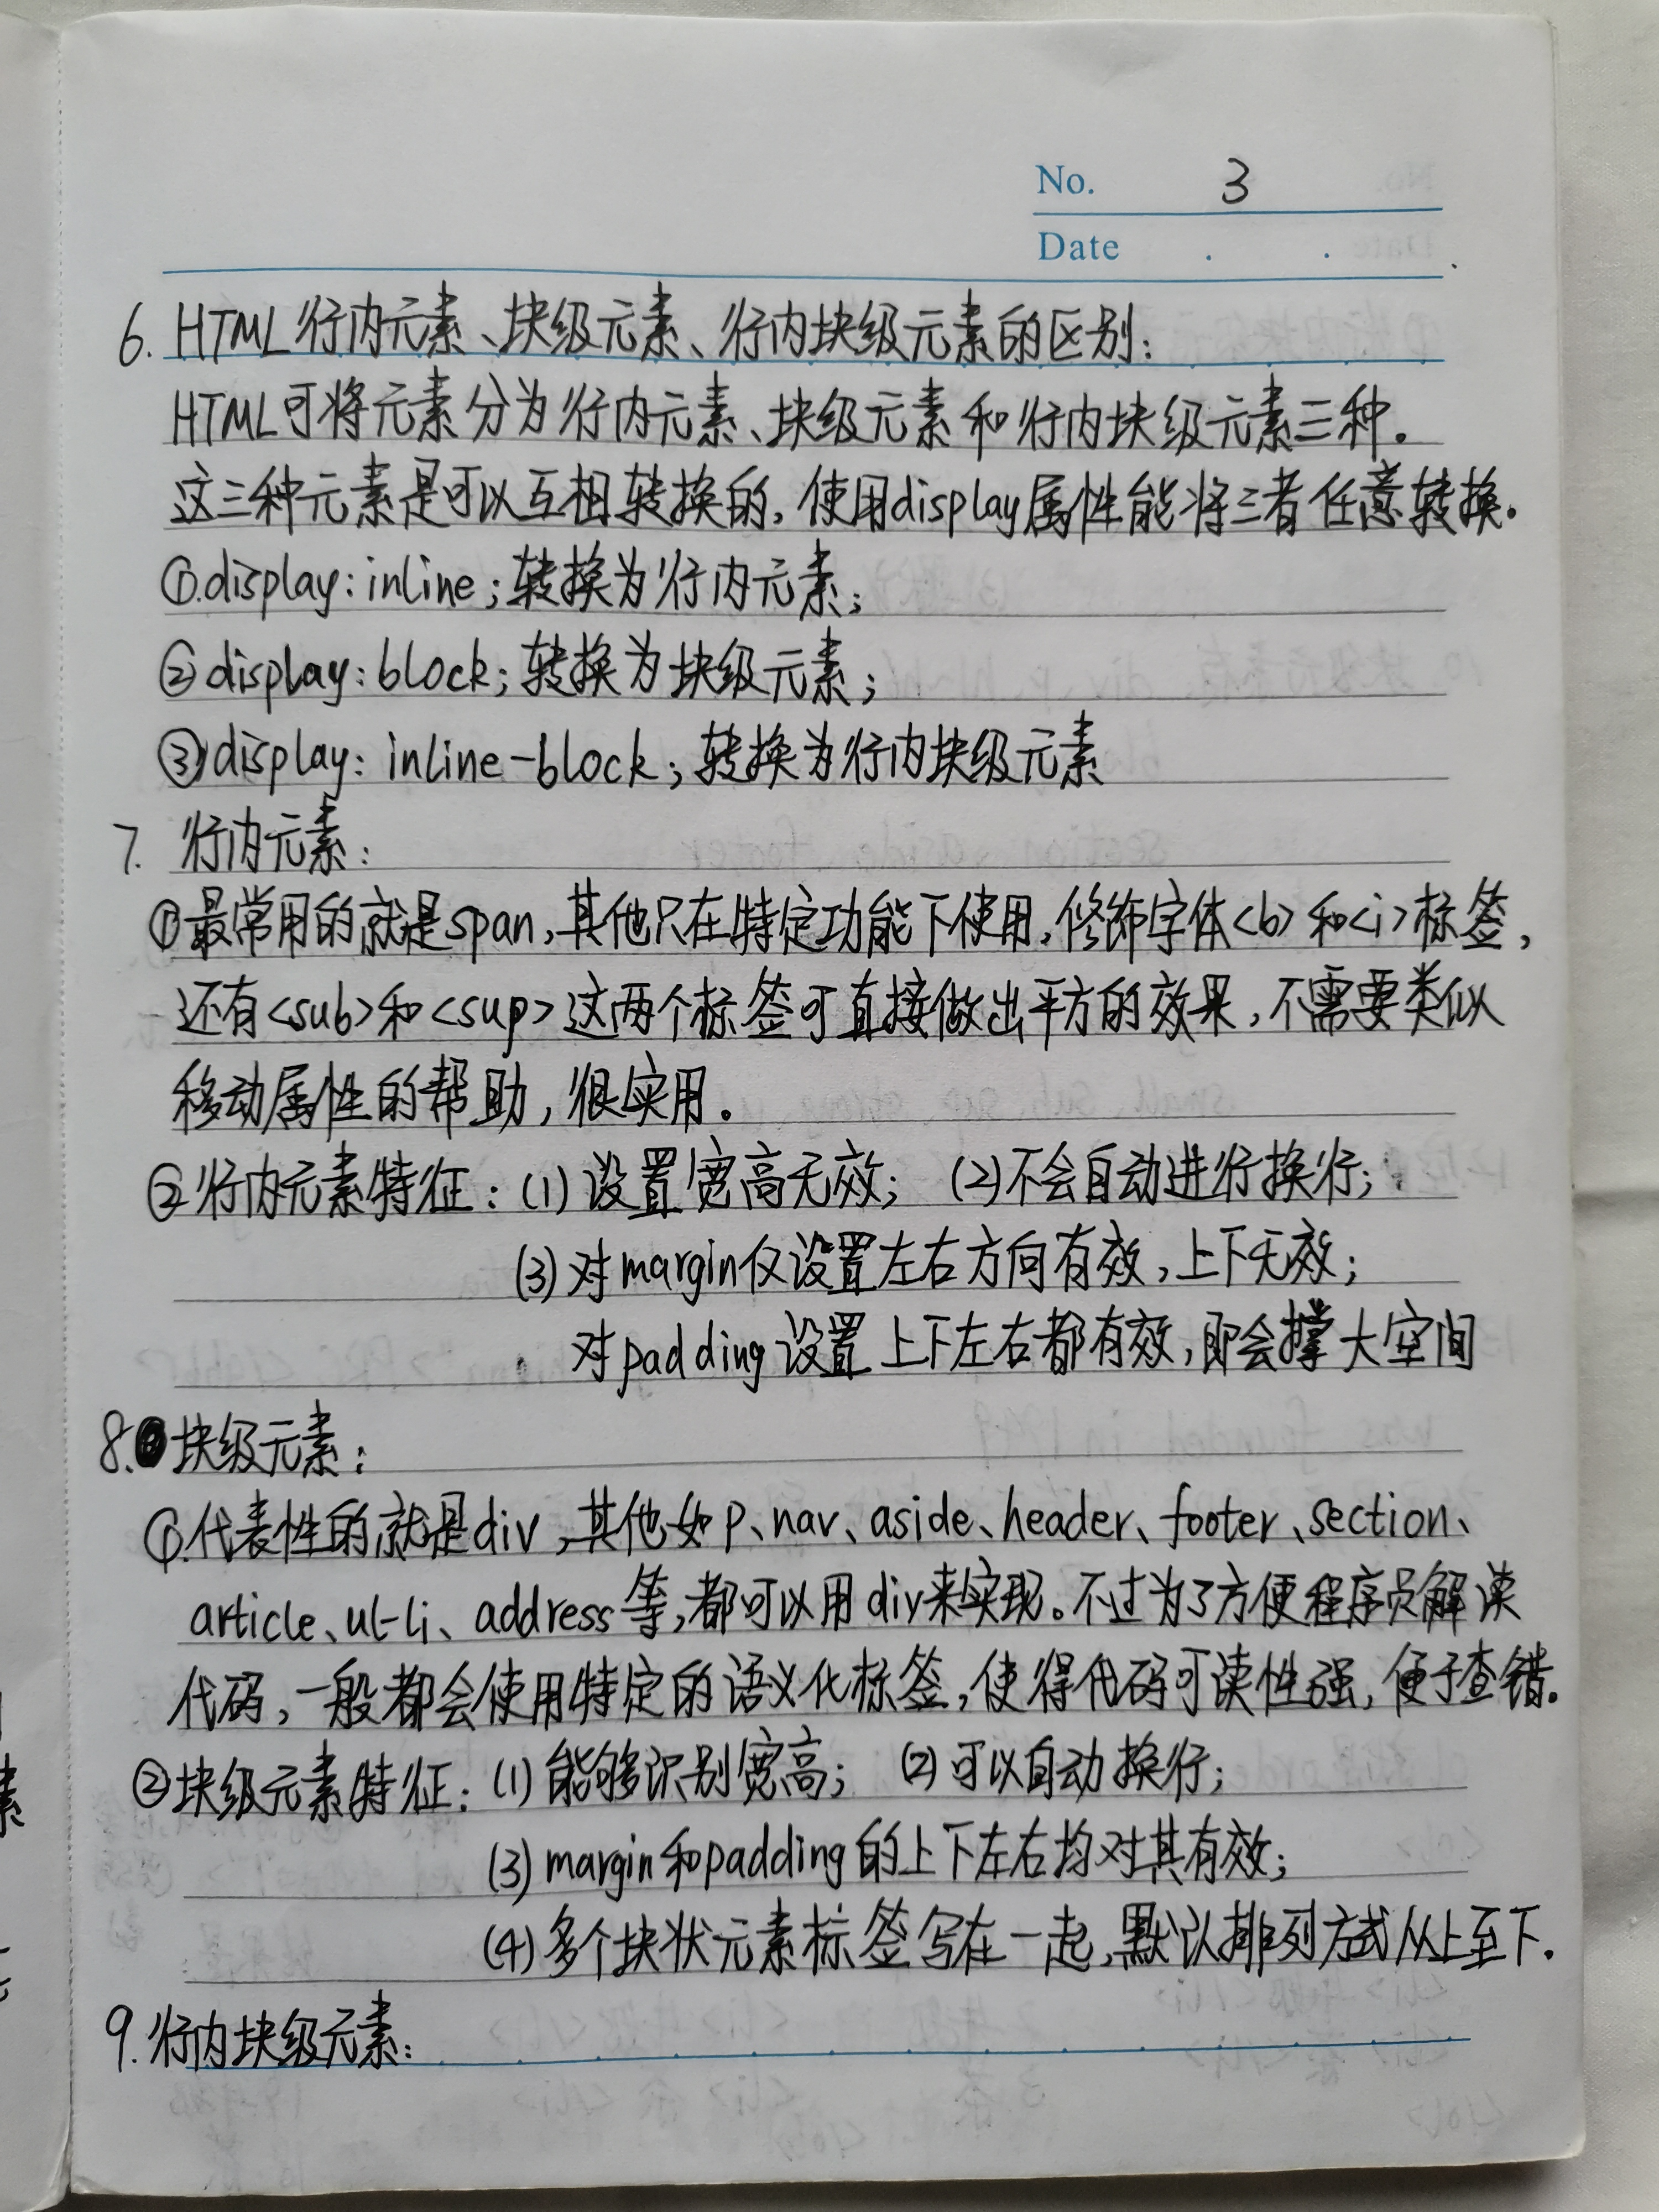 No. 3
Date . . .
6. HTML行内元素、块级元素、行内块级元素的区别:
HTML可将元素分为行内元素、块级元素和行内块级元素三种。
这三种元素是可以互相转换的,使用display属性能将三者任意转换。
①.display:inline;转换为行内元素;
②display:block;转换为块级元素;
③display:inline-block;转换为行内块级元素
7. 行内元素:
①最常用的就是span,其他只在特定功能下使用,修饰字体<b>和<i>标签,
还有<sub>和<sup>这两个标签可直接做出平方的效果,不需要类似
移动属性的帮助,很实用。
②行内元素特征:(1)设置宽高无效; (2)不会自动进行换行;
(3)对margin仅设置左右方向有效,上下无效;
对padding设置上下左右都有效,即会撑大空间
8.块级元素:
①.代表性的就是div,其他如p、nav、aside、header、footer、section、
article、ul-li、address等,都可以用div来实现。不过为了方便程序员解读
代码,一般都会使用特定的语义化标签,使得代码可读性强,便于查错。
②块级元素特征:(1)能够识别宽高; (2)可以自动换行;
(3)margin和padding的上下左右均对其有效;
(4)多个块状元素标签写在一起,默认排列方式从上至下。
9.行内块级元素: